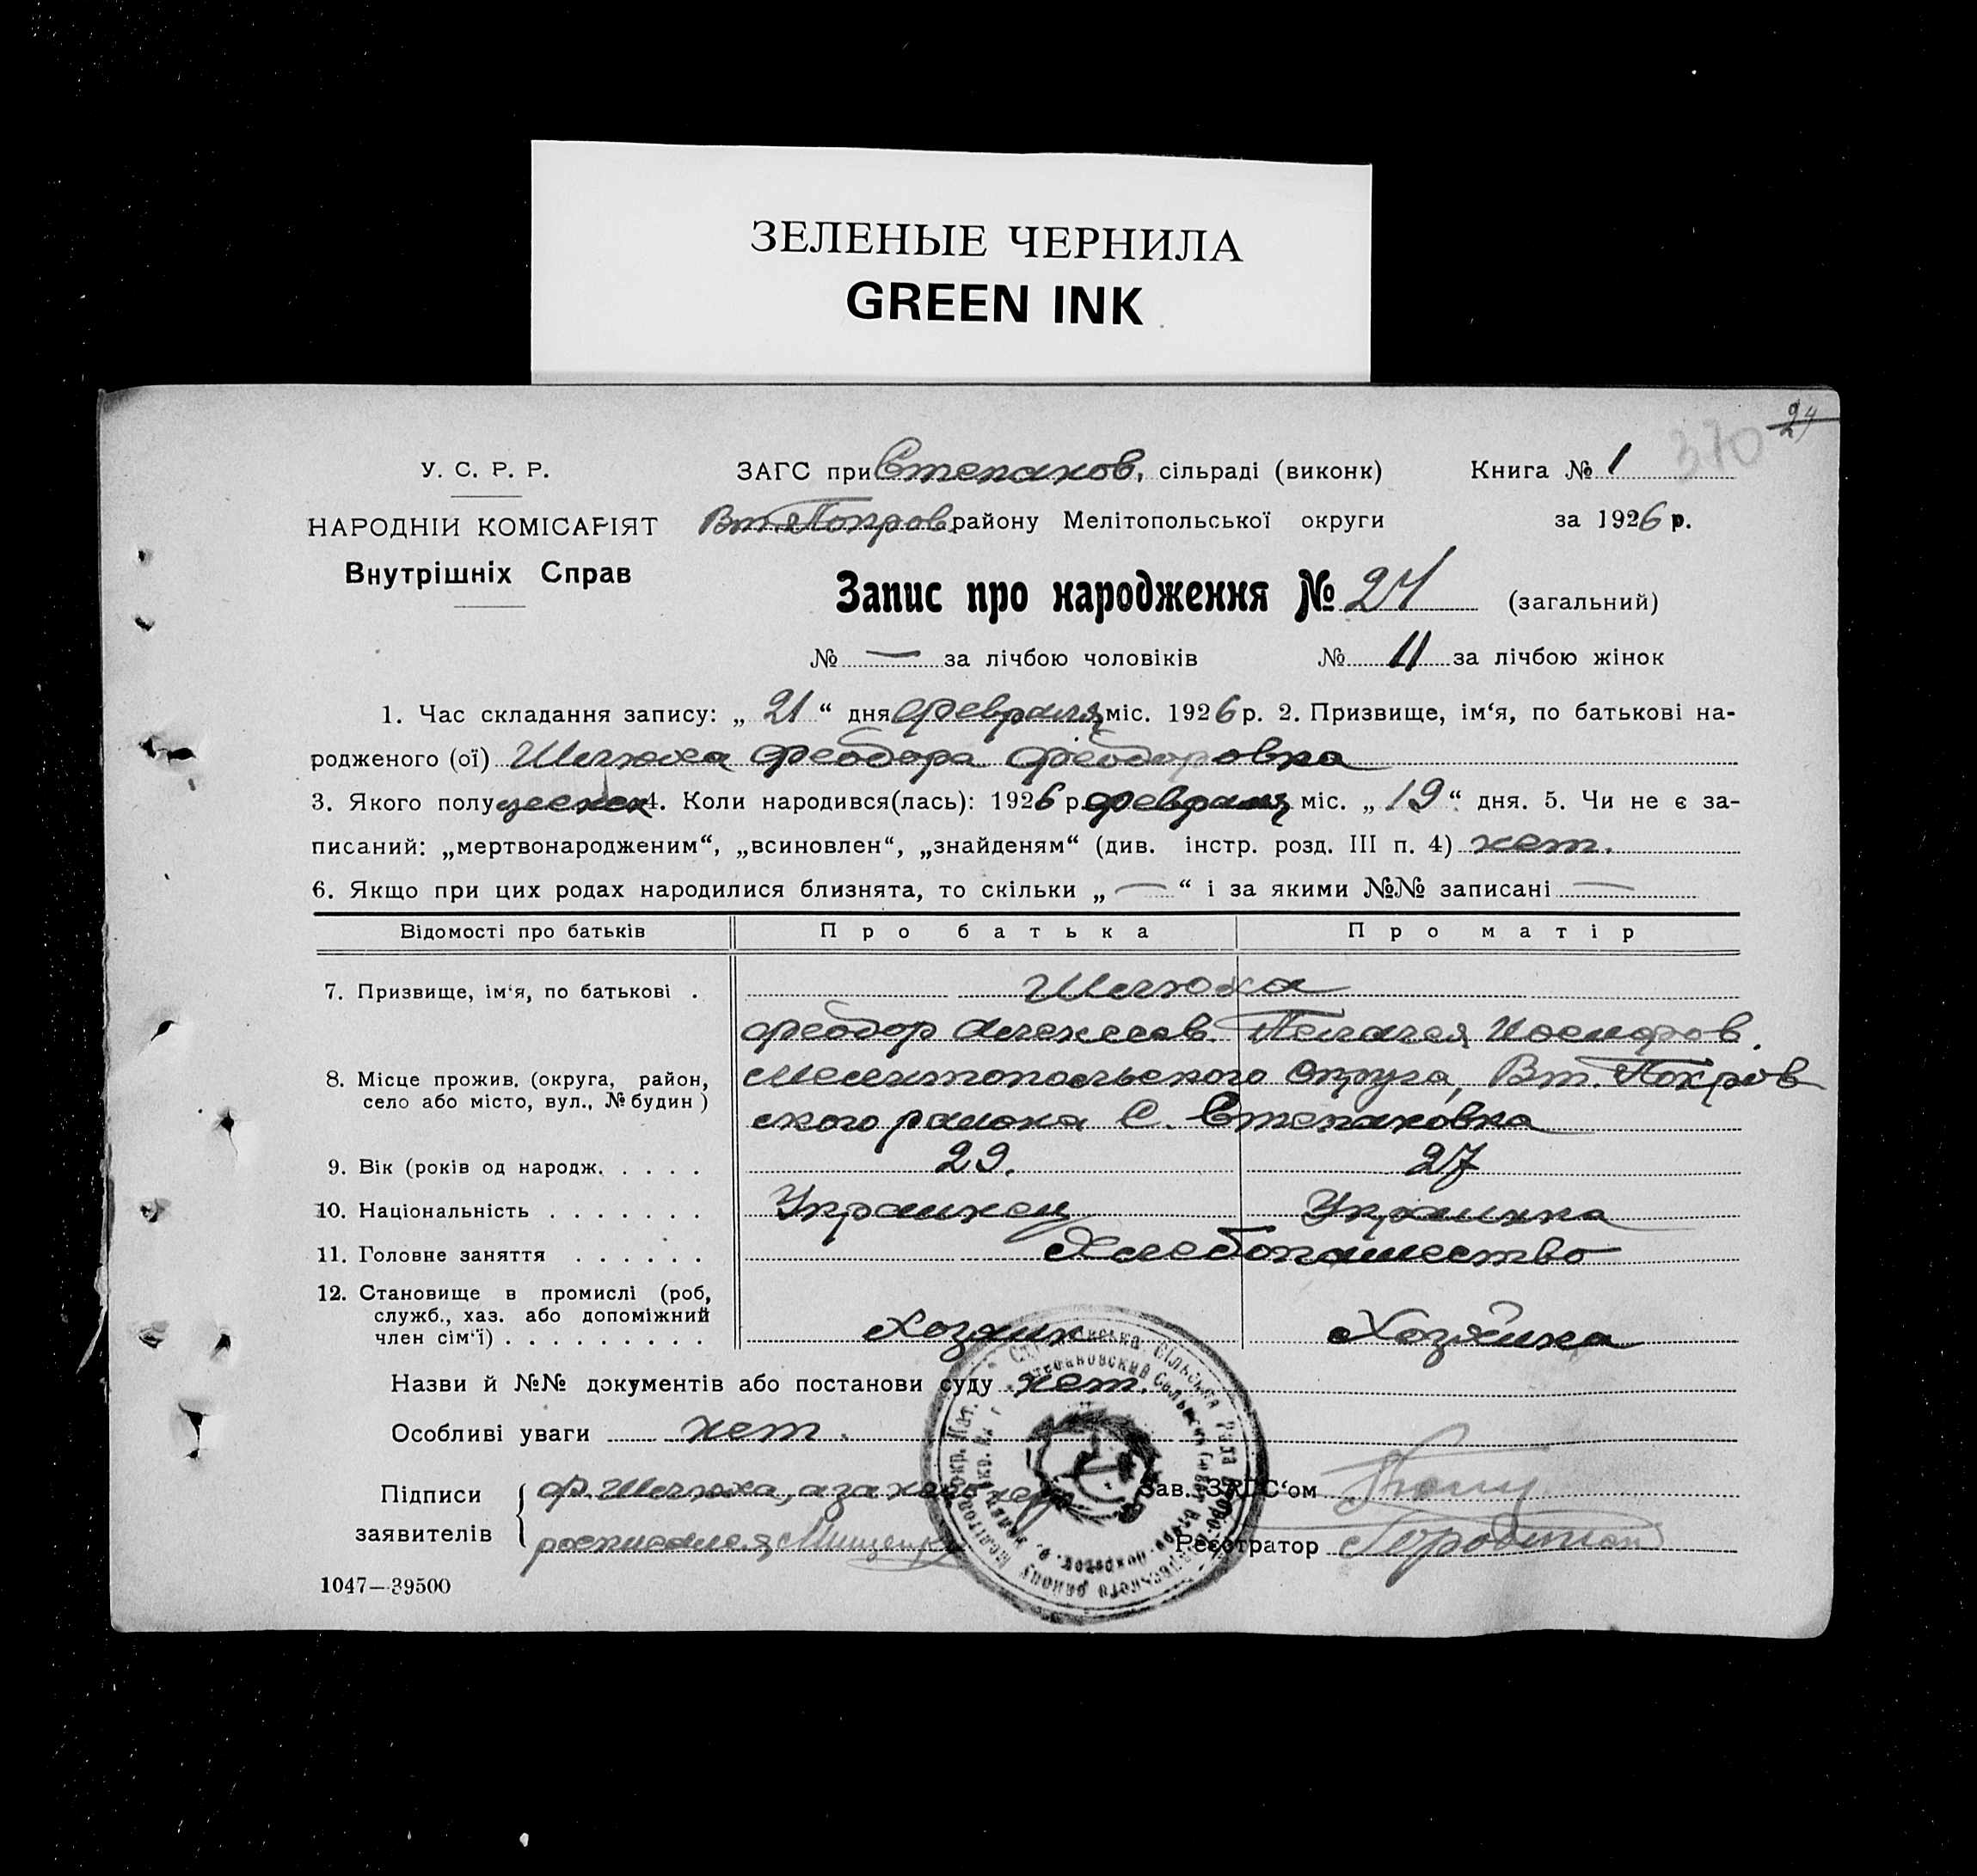 ЗЕЛЕНЫЕ ЧЕРНИЛА
GREEN INK
24
370
У. С. Р. Р.
НАРОДНІЙ КОМІСАРІЯТ
Внутрішніх Справ
ЗАГС при Степанов. сільраді (виконк)
Книга № 1
Вт. Покров. району Мелітопольської округи
за 1926 р.
Запис про народження № 24 (загальний)
№ — за лічбою чоловіків № 11 за лічбою жінок
1. Час складання запису: „ 21 “ дня февраля міс. 1926 р. 2. Призвище, ім‘я, по батькові на-
родженого (ої) Шелюха Феодора Феодоровна
3. Якого полу женск 4. Коли народився(лась): 1926 р. февраля міс. „ 19 “ дня. 5. Чи не є за-
писаний: „мертвонародженим“, „всиновлен“, „знайденям“ (див. інстр. розд. III п. 4) нет.
6. Якщо при цих родах народилися близнята, то скільки „ — “ і за якими №№ записані —
Відомості про батьків Про батька Про матір
7. Призвище, ім‘я, по батькові . Шелюха
Феодор Алексеев. Пелагея Иосифов.
8. Місце прожив. (округа, район,
село або місто, вул., № будин )
Мелитопольского Округа, Вт. Покров
ского района С. Степановка
9. Вік (років од народж. . . . . 29. 27
10. Національність . . . . . . . Украинец Украинка
11. Головне заняття . . . . . . Хлебопашество
12. Становище в промислі (роб,
служб., хаз. або допоміжний
член сім‘ї) . . . . . . . . . Хозяин Хозяйка
Назви й №№ документів або постанови суду нет.
Особливі уваги нет.
Підписи
заявителів
Ф. Шелюха, а за него негр
росписался Мищенко
Зав. ЗАГС‘ом
Реєстратор
1047—39500